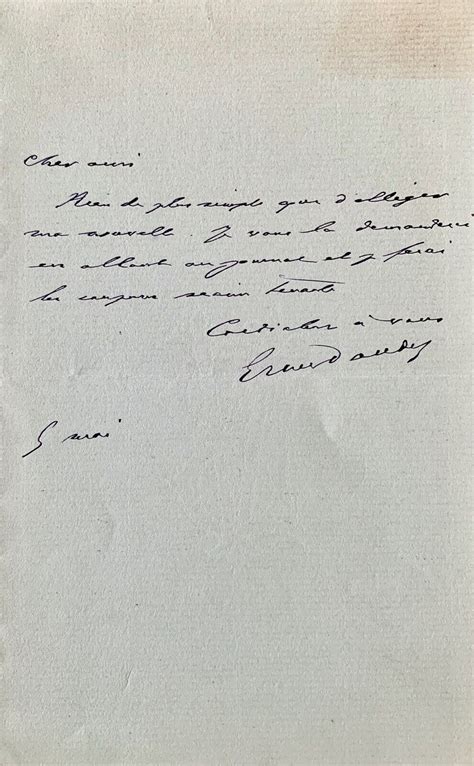 Cher ami
Rien de plus simple que d'alléger
ma nouvelle. Je vous la demanderai
en allant au journal et j'y ferai
les coupures séance tenante
Cordialement à vous
Ernest Daudet
5 mai